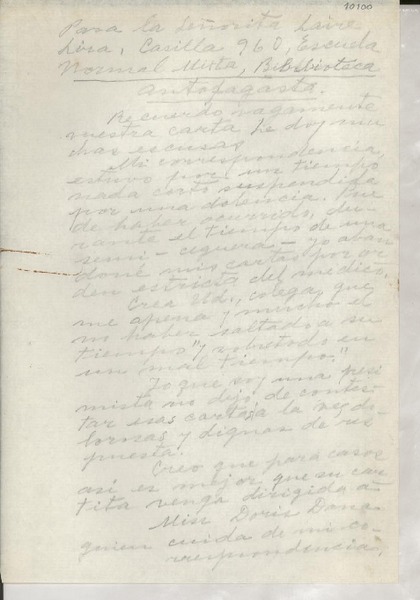 10100
Para la Señorita Laire
Lira, Casilla 960, Escuela
Normal Mixta, Biblioteca
Antofagasta.
Recuerdo vagamente
vuestra carta. Le doy mu
chas escusas.
Mi correspondencia,
estuvo por un tiempo
nada corto suspendida
por una dolencia. Pue
de haber ocurrido, du
rante el tiempo de una
semi-ceguera - Yo aban
doné mis cartas por or
den estricta del médico.
Crea Ud., colega, que
me apena y mucho el
no haber
tiempo" y sobretodo en
un mal tiempo."
Yo que soy una pesi
mista no dejo de contes
tar esas cartas a la vez do
lorosas y dignas de res
puesta.
Creo que para casos
así es mejor que su car
tita venga dirigida a
Miss Doris Dana
quien cuida de mi co
rrespondencia.